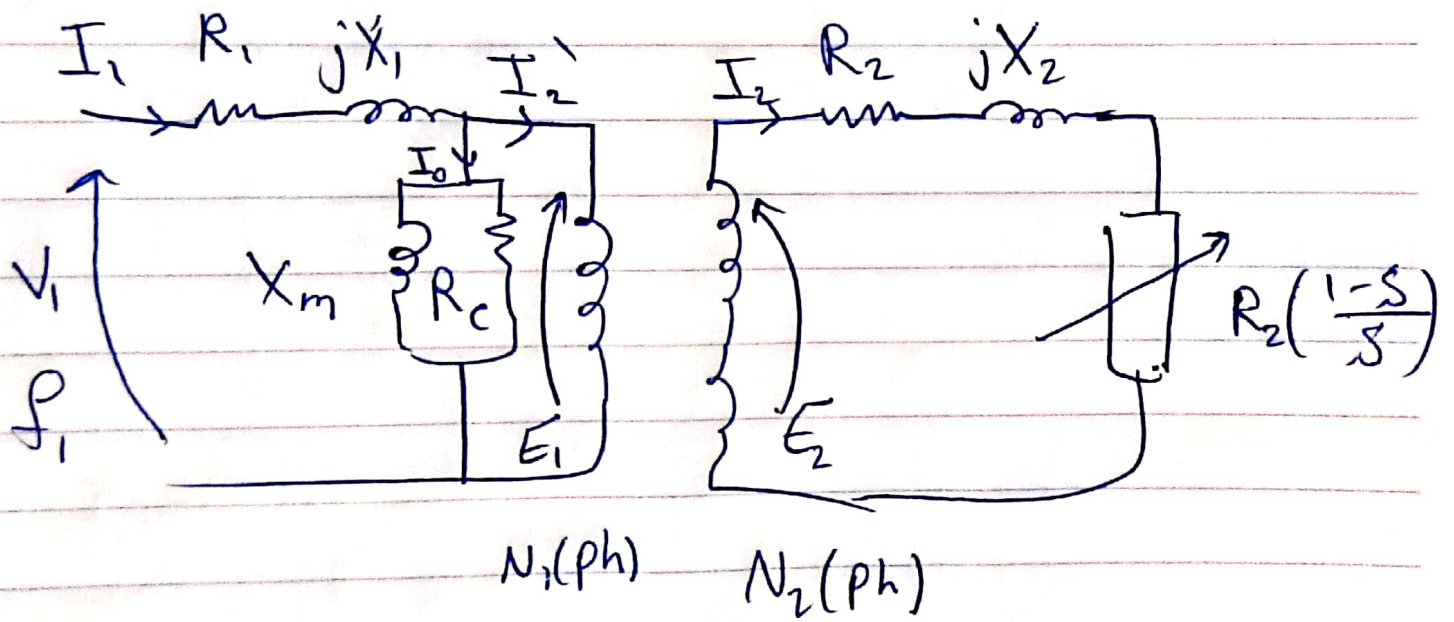 I₁ R₁ jX₁ I₂` I₂ R₂ jX₂
I₀
V₁ Xₘ R_C R₂((1-S)/S)
f₁ E₁ E₂
N₁(ph) N₂(ph)